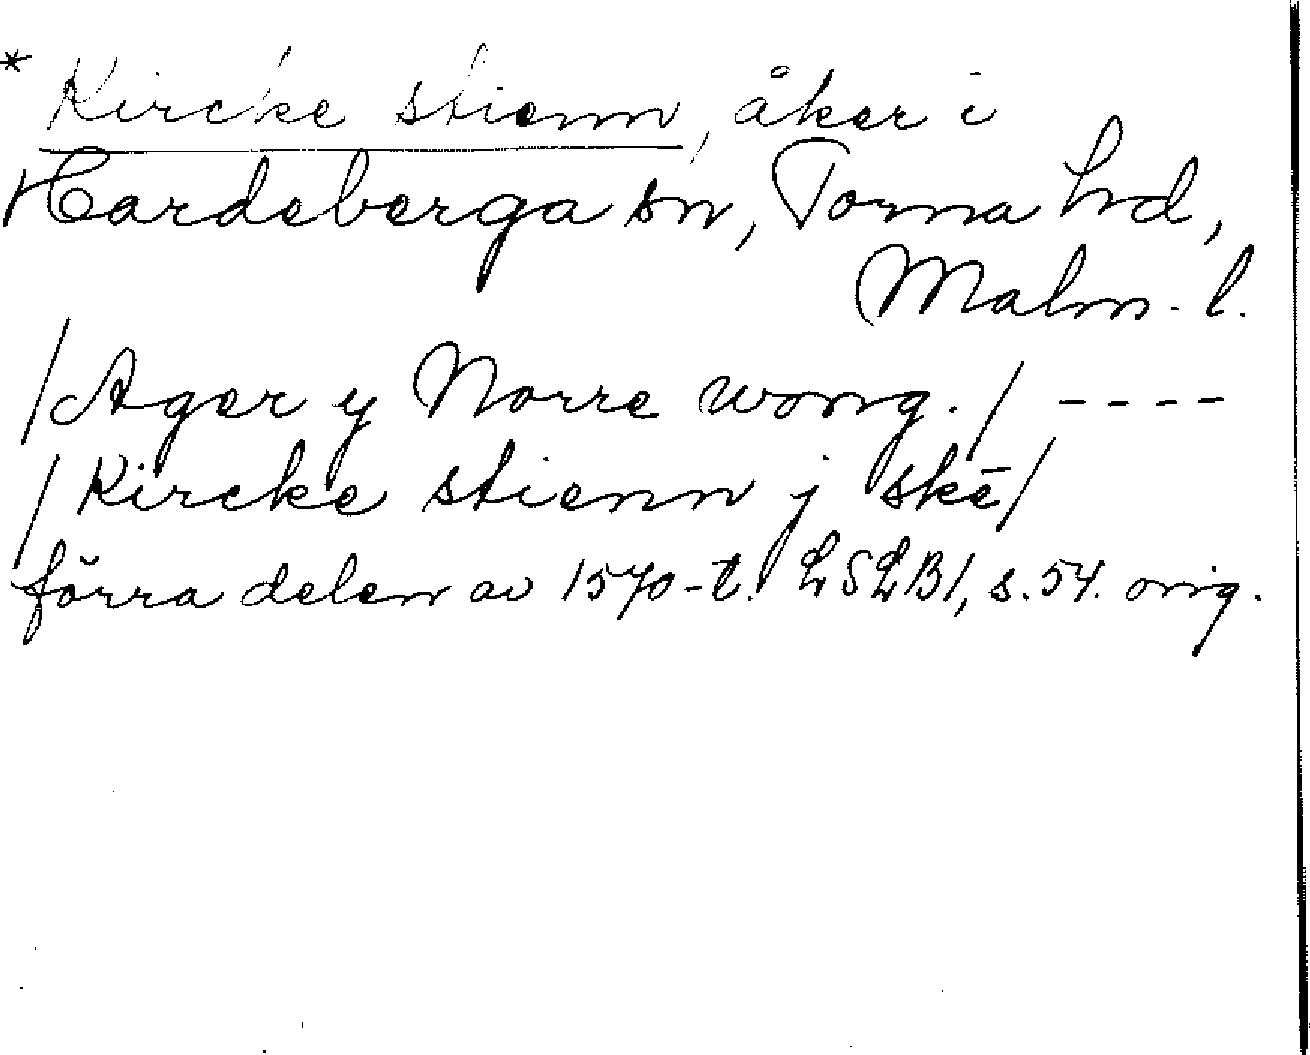 * Kircke stienn, åker i
Hardeberga sn, Torna hd,
Malm. l.
/Ager y Norre wong./ ----
/Kircke stienn j skē/
förra delen av 1570-t. LSLB1, s.54. orig.